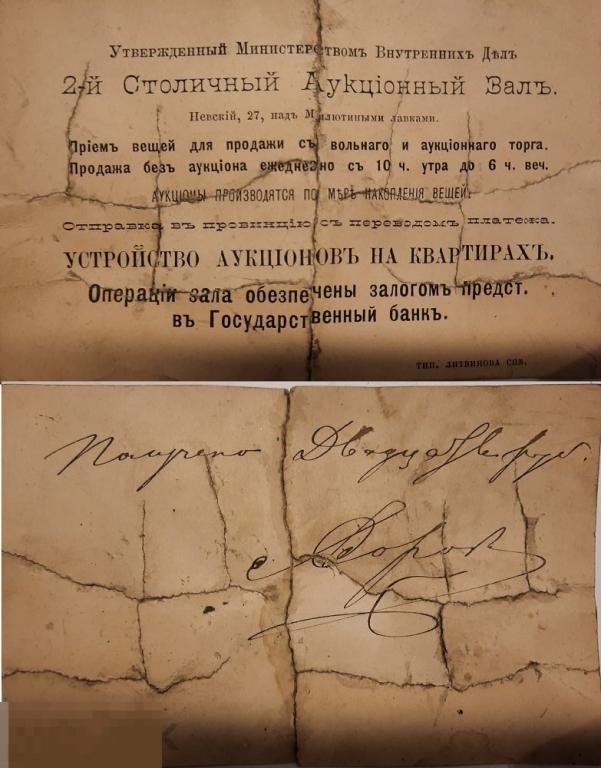 Утвержденный Министерствомъ Внутреннихъ Дѣлъ
2-й Столичный Аукціонный Залъ.
Невскій, 27, надъ Милютиными лавками.
Пріемъ вещей для продажи съ вольнаго и аукціоннаго торга.
Продажа безъ аукціона ежедневно съ 10 ч. утра до 6 ч. веч.
АУКЦІОНЫ ПРОИЗВОДЯТСЯ ПО МѢРѢ НАКОПЛЕНІЯ ВЕЩЕЙ.
Отправка въ провинцію съ переводомъ платежа.
УСТРОЙСТВО АУКЦІОНОВЪ НА КВАРТИРАХЪ.
Операціи зала обезпечены залогомъ предст.
въ Государственный банкъ.
ТИП. ЛИТВИНОВА СПБ.
Получено Двадцать руб.